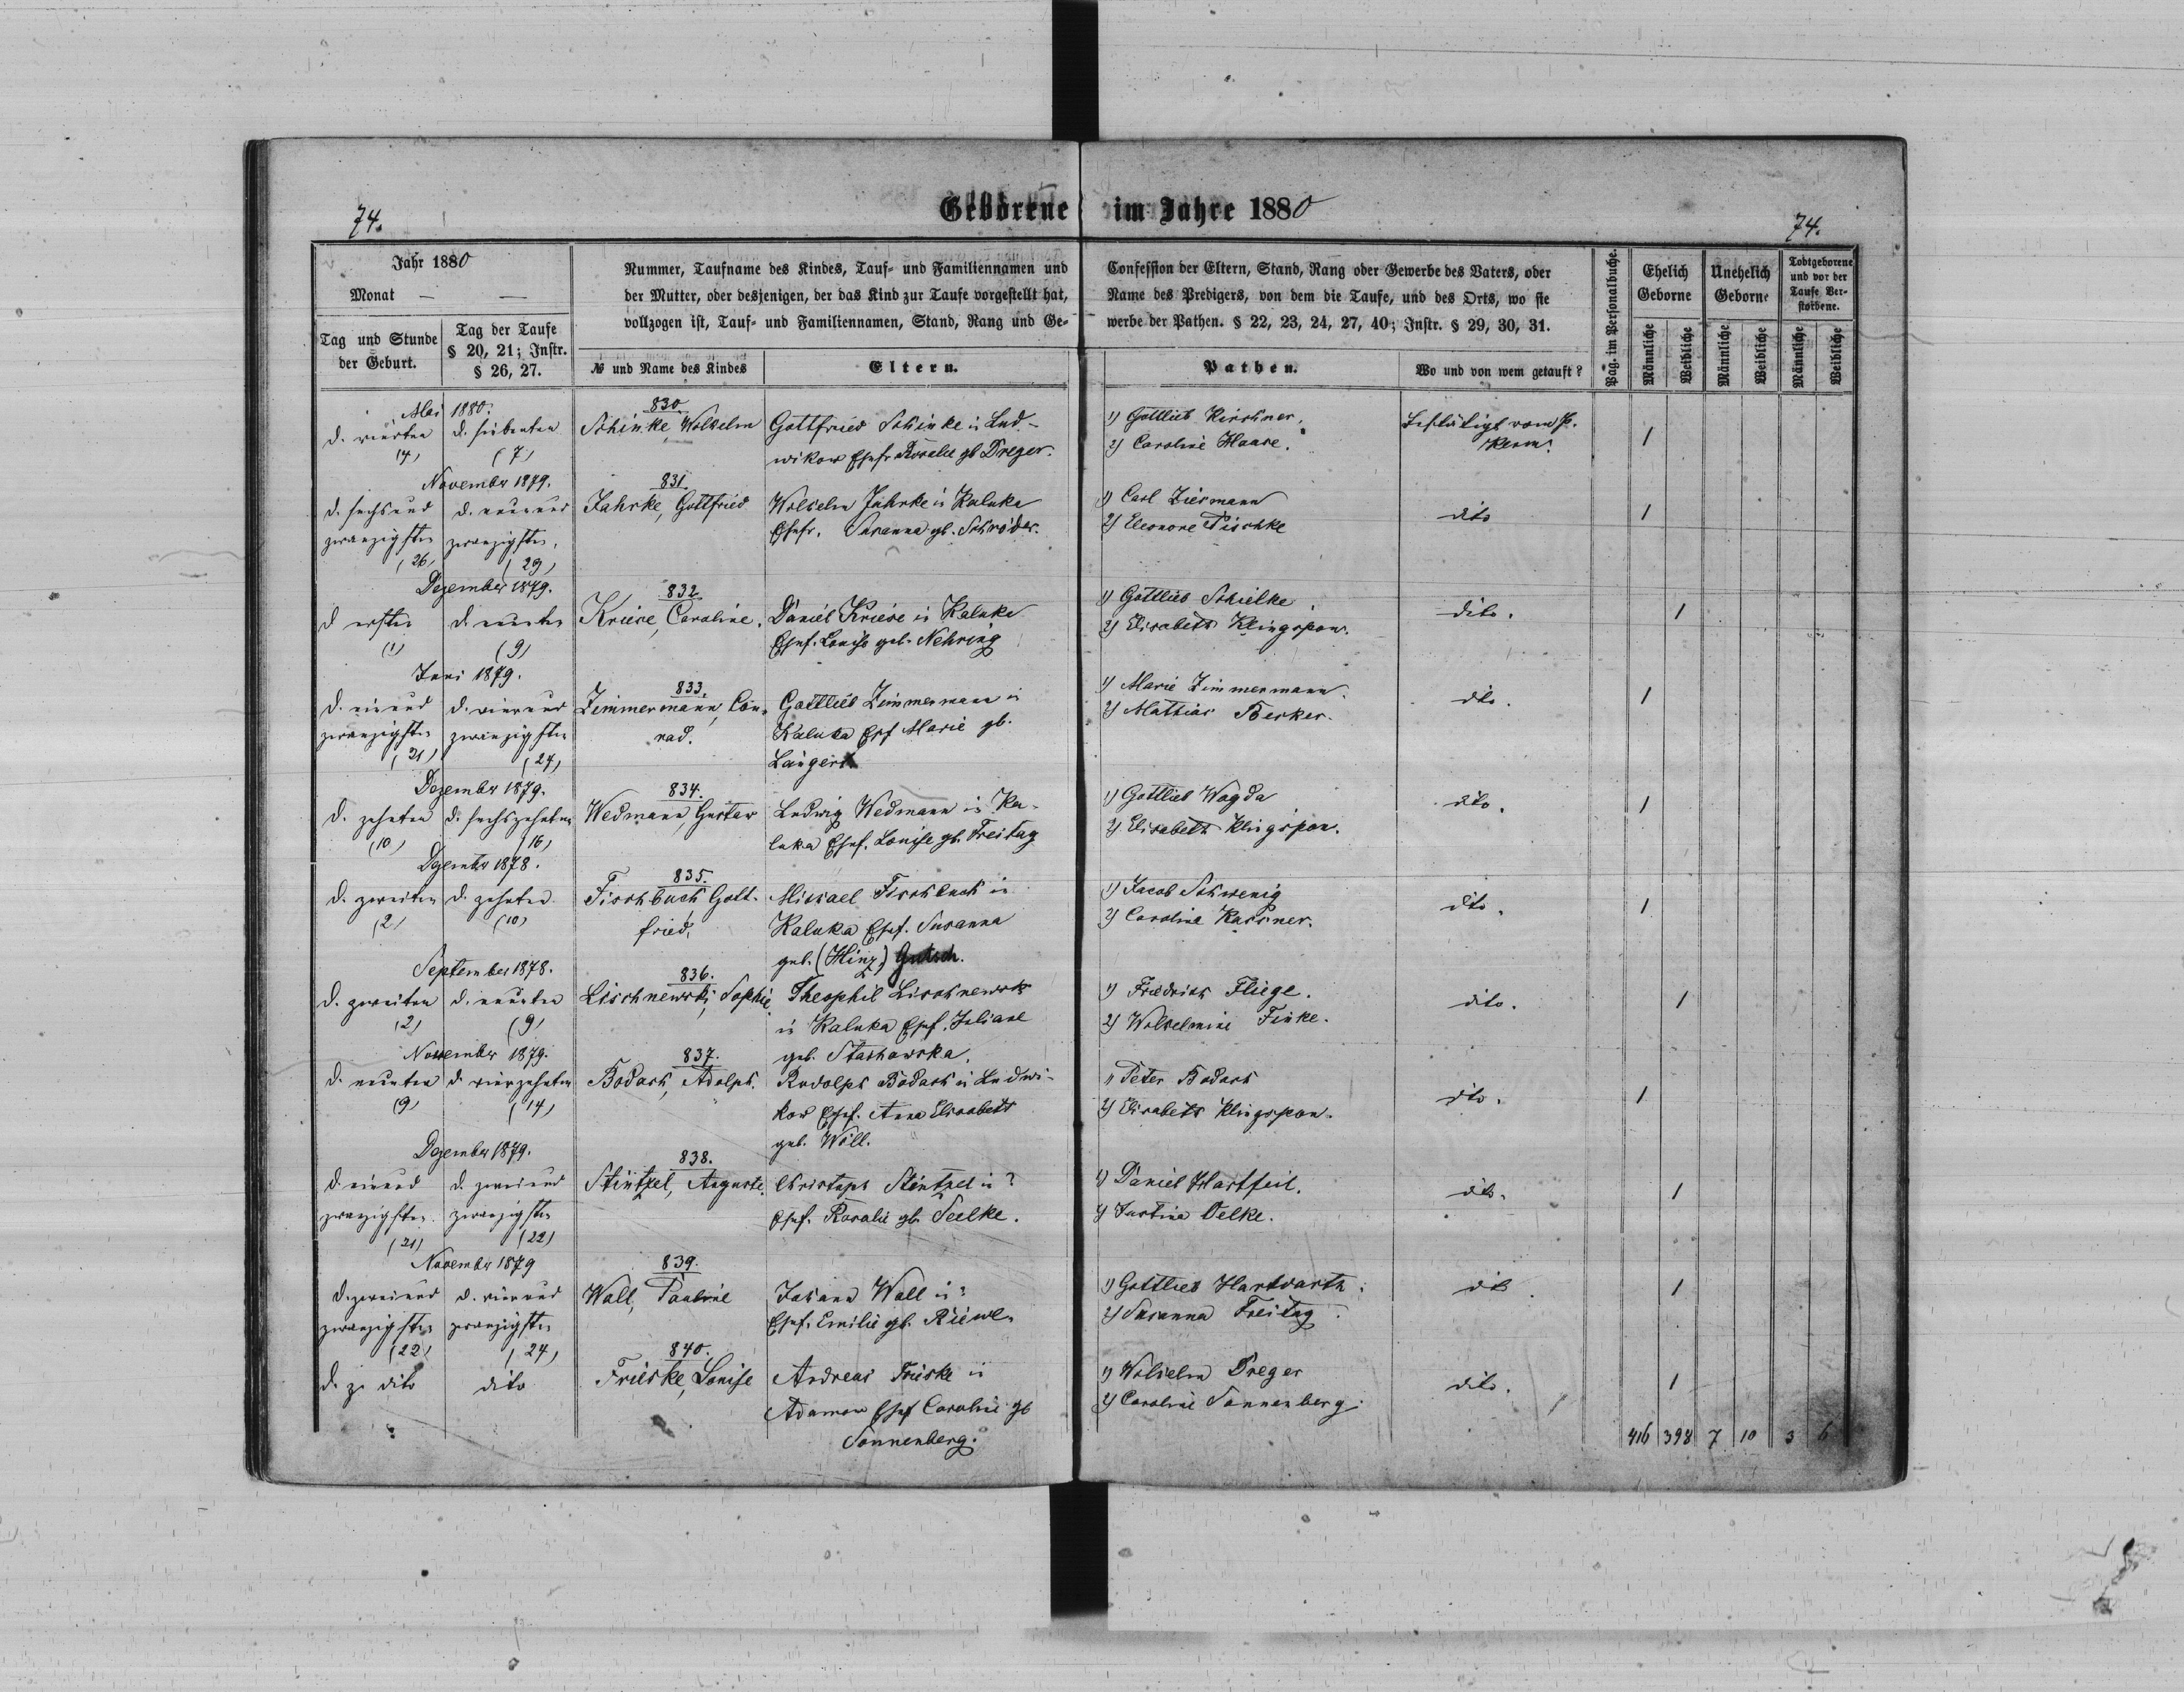 Geborene im Jahre 1880
74.
74.
Jahr 1880
Monat — —
Tag und Stunde der Geburt.
Tag der Taufe § 20, 21; Instr. § 26, 27.
Nummer, Taufname des Kindes, Tauf- und Familiennamen und
der Mutter, oder desjenigen, der das Kind zur Taufe vorgestellt hat,
vollzogen ist, Tauf- und Familiennamen, Stand, Rang und Ge-
№ und Name des Kindes
Eltern.
Confession der Eltern, Stand, Rang oder Gewerbe des Vaters, oder
Name des Predigers, von dem die Taufe, und des Orts, wo sie
werbe der Pathen. § 22, 23, 24, 27, 40; Instr. § 29, 30, 31.
Pathen.
Wo und von wem getauft?
Pag. im Personalbuche.
Ehelich Geborne
Unehelich Geborne
Todtgeborene und vor der Taufe Verstorbene.
Männliche
Weibliche
Männliche
Weibliche
Männliche
Weibliche
Mai 1880.
830.
d. vierten d. siebenten Schinke, Wilhelm Gottfried Schinke in Lud- 1) Gottlieb Kirschner, Bestätigt vom P. 1
(4) (7) wikow Ehefr. Rosalie gb Dreger. 2) Caroline Haase.
November 1879.
831.
d. sechsund d. neunund Jahnke, Gottfried Wilhelm Jahnke in Kaluka 1) Carl Ziesmann dito 1
zwanzigsten zwanzigsten, Ehefr. Susanna gb. Schröder. 2) Eleonore Tischke
(26) (29)
Dezember 1879.
832.
d ersten d. neunten Kriese, Caroline. Daniel Kriese in Kaluka 1) Gottlieb Schielke dito. 1
(1) (9) Ehef. Louise geb. Nehring 2) Elisabeth Klingspon.
Juni 1879.
833.
d. einund d. vierund Zimmermann, Con- Gottlieb Zimmermann in 1) Marie Zimmermann. dito. 1
zwanzigsten zwanzigsten rad. Kaluka Ehf Marie gb. 2) Mathias Berker.
(21) (24) Längert
Dezember 1879.
834.
d. zehnten d. sechszehnten Wedmann, Gustav Ludwig Wedmann in Ka- 1) Gottlieb Wagda dito. 1
(10) (16) luka Ehef. Louise gb. Freitag 2) Elisabeth Klingspon.
Dezember 1878.
835.
d. zweiten d. zehnten Fischbuch, Gott- Michael Fischbuch in 1) Jacob Schwenig dito. 1
(2) (10) fried. Kaluka Ehef. Susanna 2) Carolina Kassner.
geb. (Hinz)
September 1878.
836.
d. zweiten d. neunten Lischnewski, Sophie Theophil Lischnewski 1) Friedrich Fliege. dito. 1
(2) (9) in Kaluka Ehef. Juliane 2) Wilhelmine Finke.
geb. Stachowska.
November 1879.
837.
d. neunten d. vierzehnten Bodach, Adolph. Rudolph Bodach in Ludwi- 1) Peter Bodach dto. 1
(9) (14) kow Ehef. Anna Elisabeth 2) Elisabeth Klingspon.
geb. Will.
Dezember 1879.
838.
d. einund d. zweiund Stintzel, Auguste. Christoph Stintzel in ? 1) Daniel Hartfeil. dito. 1
zwanzigsten zwanzigsten Ehef. Rosalie gb. Seelke. 2) Justina Oelke.
(21) (22)
November 1879
839.
d. zweiund d. vierund Wall, Pauline Johann Wall in ? 1) Gottlieb Hartwarth. dit. 1
zwanzigsten zwanzigsten Ehef. Emilie gb. Riewe. 2) Susanna Freitag.
(22) (24)
840.
d. z. dito dito Frieske, Louise Andreas Frieske in 1) Wilhelm Dreger dito. 1
Adamow Ehef Caroline gb 2) Caroline Sonnenberg.
Sonnenberg.
416 398 7 10 3 6